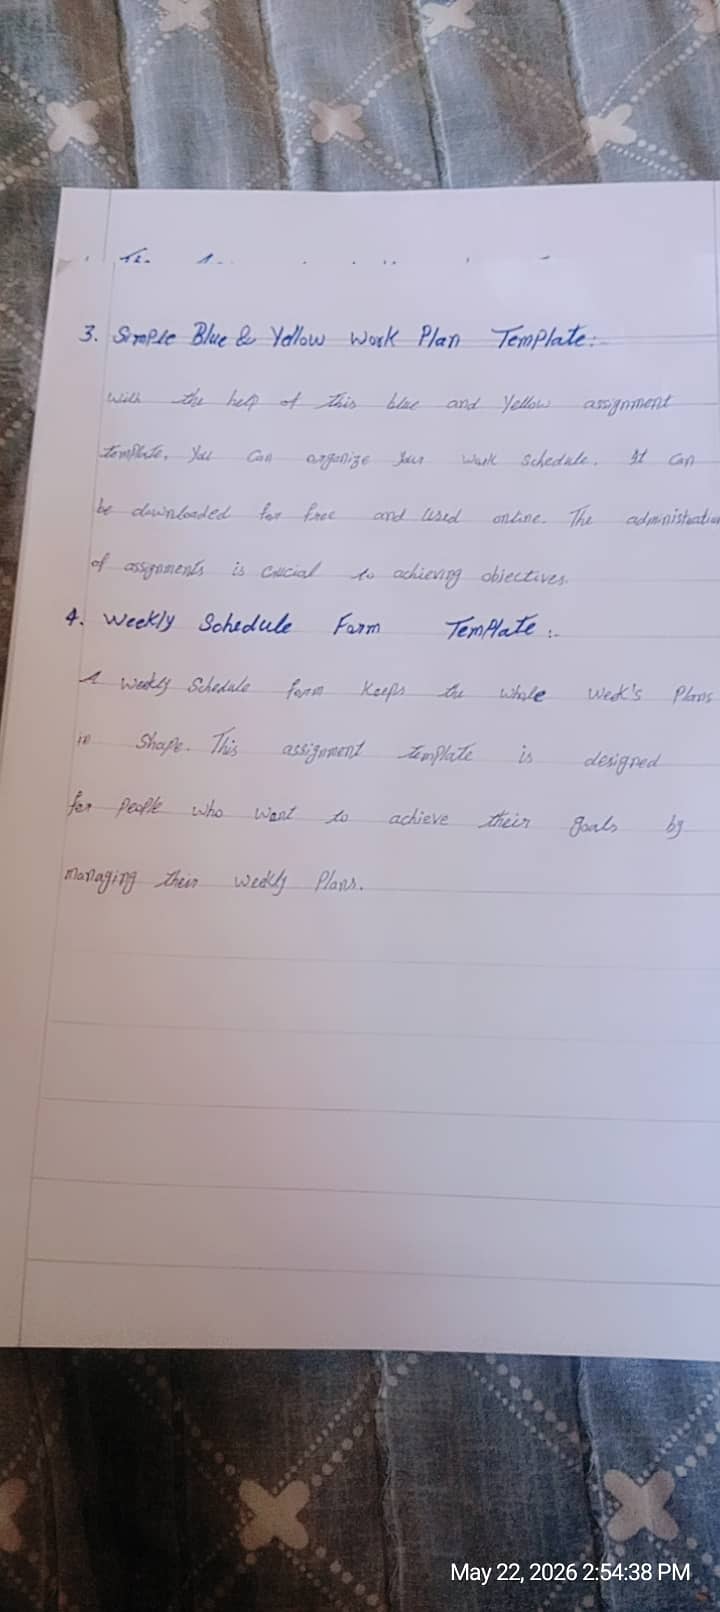 3. Simple Blue & Yellow Work Plan Template:
With the help of this blue and Yellow assignment
template, you can organize your work schedule. It can
be downloaded for free and used online. The administration
of assignments is crucial to achieving objectives.
4. Weekly Schedule Form Template :
A weekly Schedule form keeps the whole week's Plans
in Shape. This assignment template is designed
for people who want to achieve their goals by
managing their weekly Plans.
May 22, 2026 2:54:38 PM